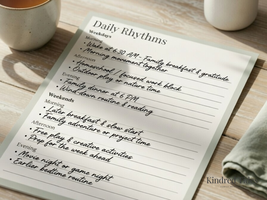 Daily Rhythms
Weekdays
Morning
• Wake at 6:30 AM, Family breakfast & gratitude
• Morning movement together
• Homeschool / focused work block
• Outdoor play or nature time
Evening
• Family dinner at 6 PM
• Wind down routine & reading
Weekends
Morning
• Later breakfast & slow start
• Family adventure or project time
• Free play & creative activities
• Prep for the week ahead
Evening
• Movie night or game night
• Earlier bedtime routine